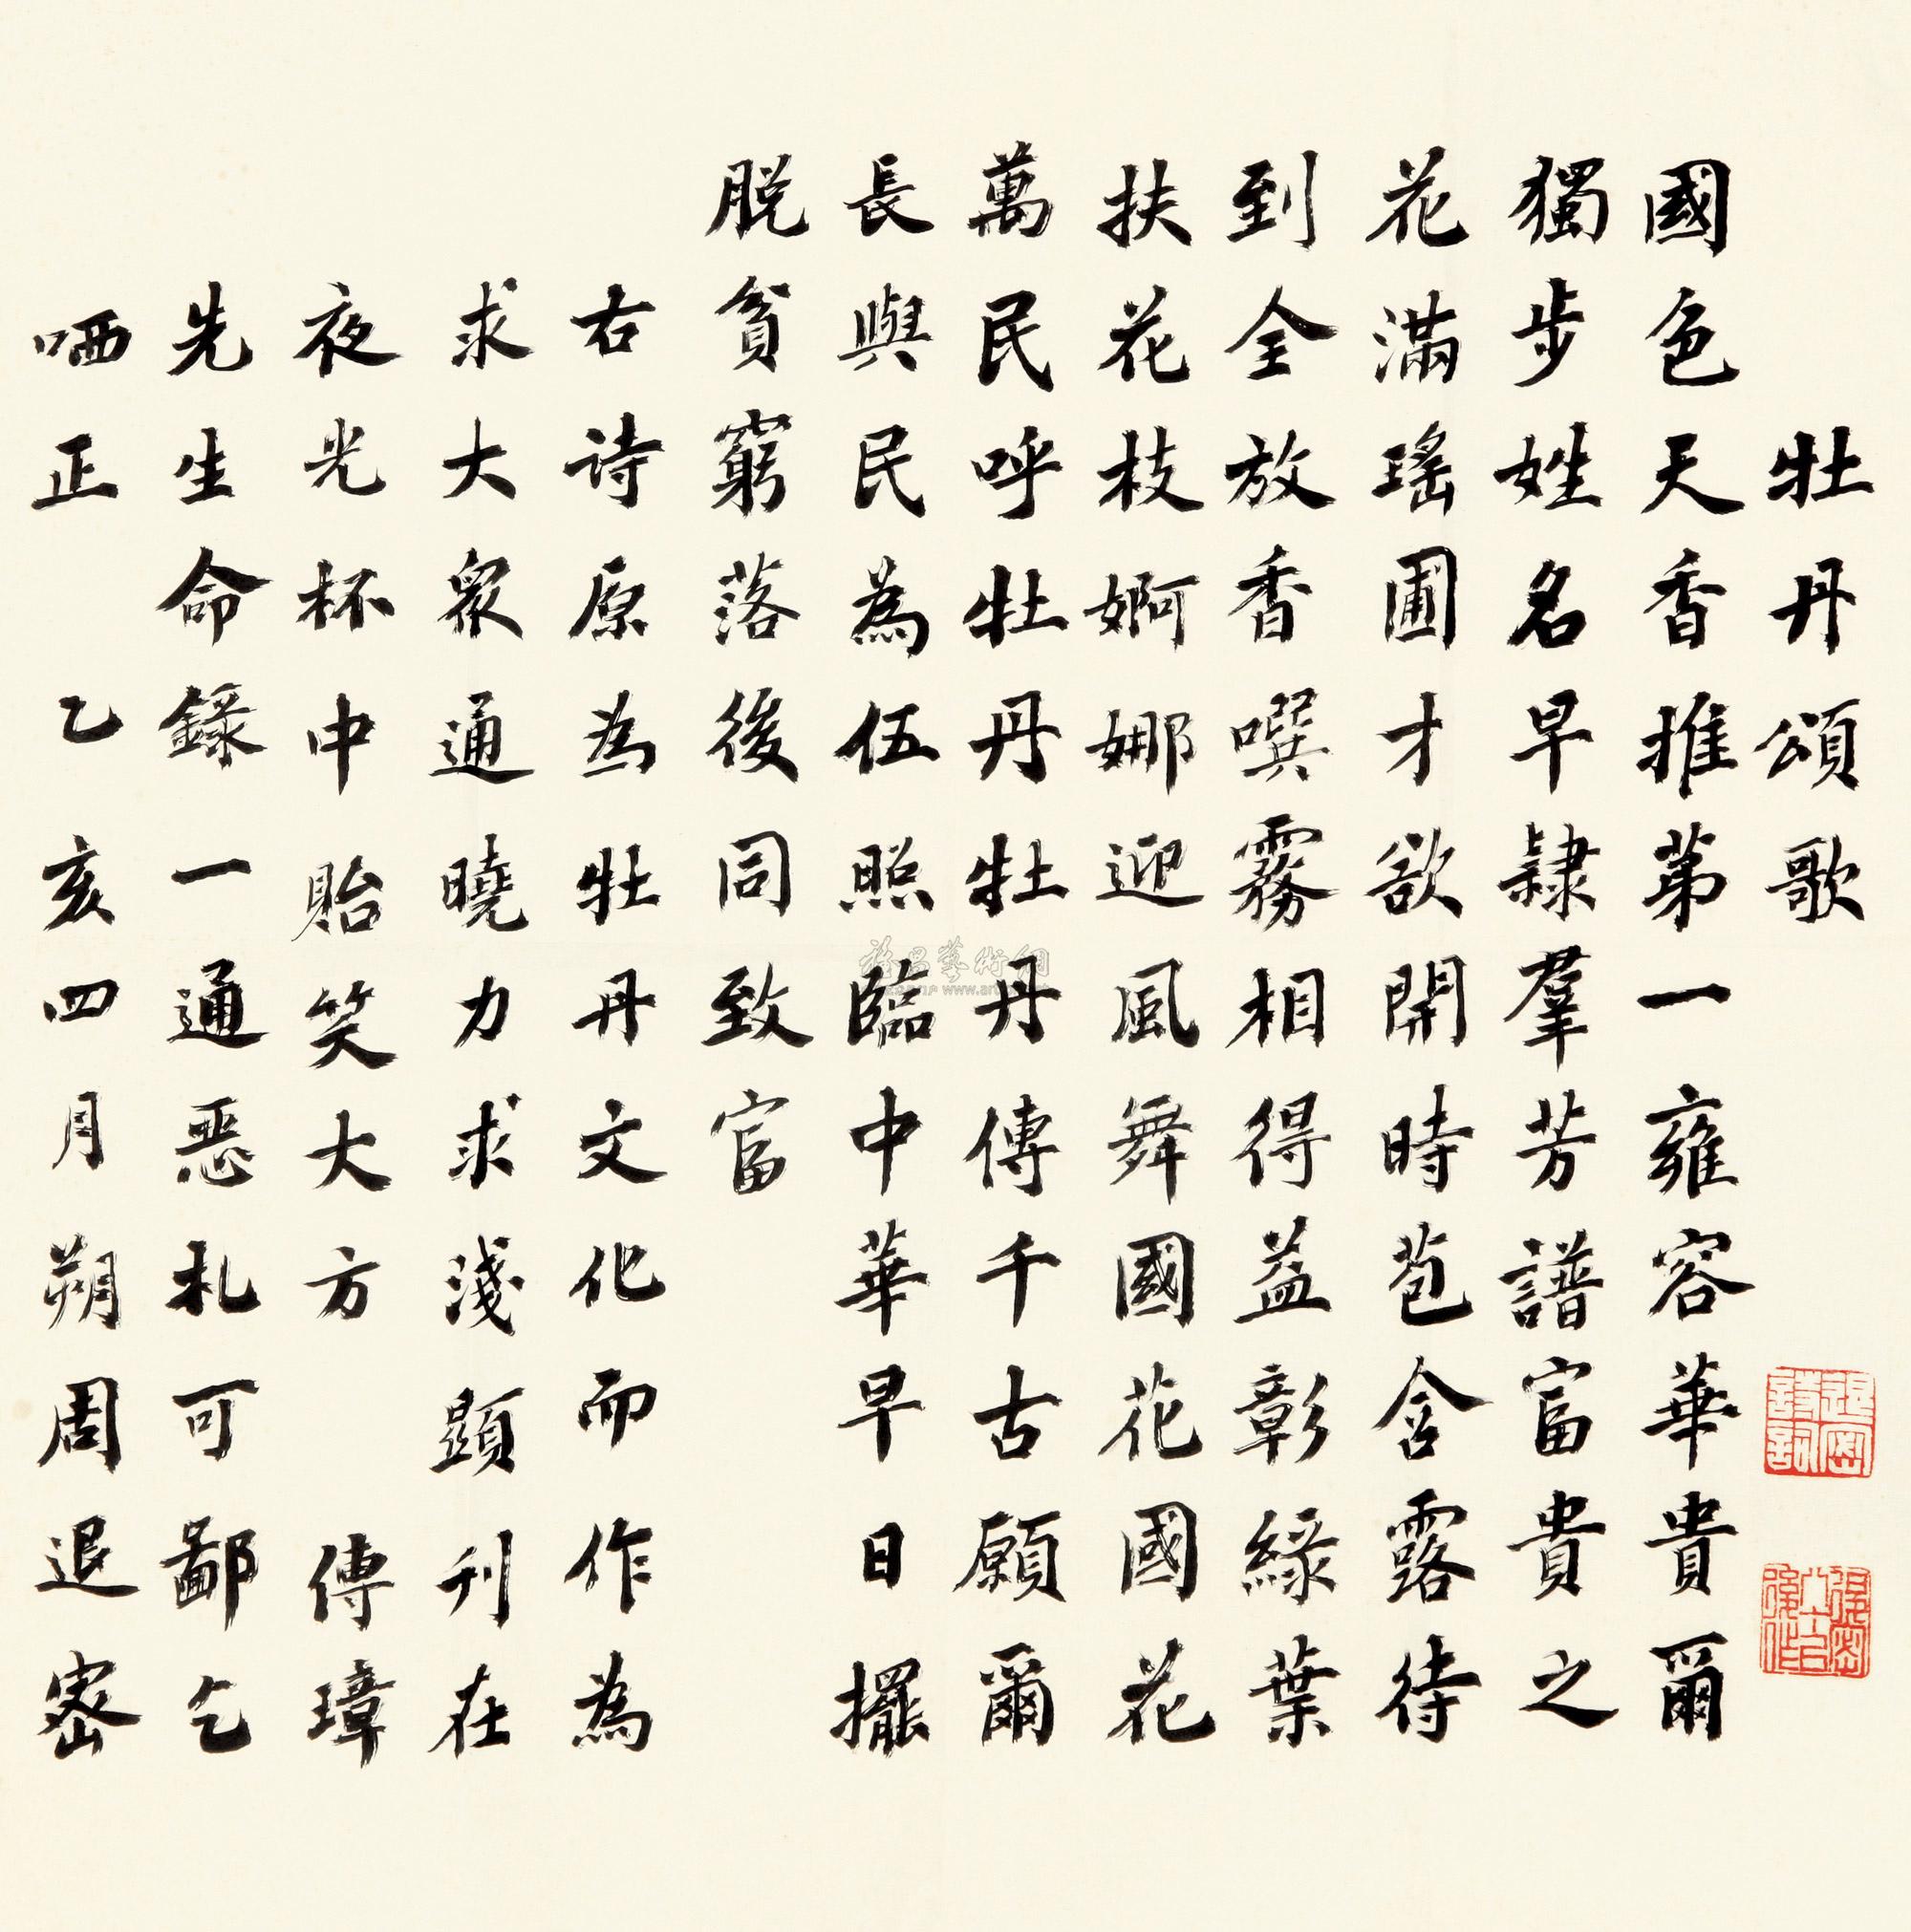 牡丹頌歌
國色天香推第一雍容華貴爾
獨步姓名早隸羣芳譜富貴之
花滿瑤圃才欲開時苞含露待
到全放香噀霧相得益彰綠葉
扶花枝婀娜迎風舞國花國花
萬民呼牡丹牡丹傳千古願爾
長與民為伍照臨中華早日擺
脫貧窮落後同致富
右诗原為牡丹文化而作為
求大眾通曉力求淺顕刊在
夜光杯中貽笑大方傳璋
先生命錄一通惡札可鄙乞
哂正乙亥四月朔周退密
退密詩詞